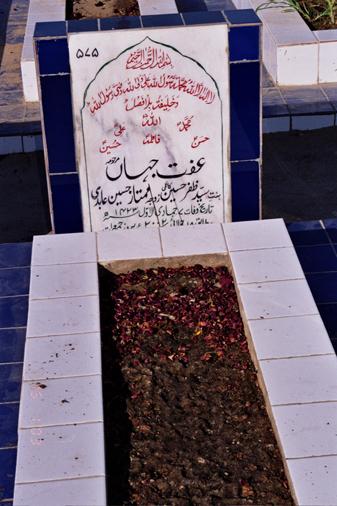 ۵۷۵
بسم اللہ الرحمن الرحیم
لا الہ الا اللہ محمد رسول اللہ علی ولی اللہ وصی رسول اللہ
وخلیفتہ بلا فصل
اللہ
محمد علی
فاطمہ
حسن حسین
عفت جہاں مرحومہ
بنت سید ظفر حسین زوجہ ممتاز حسین عابدی
تاریخ وفات ۷ جمادی الاول ۱۴۲۳ھ